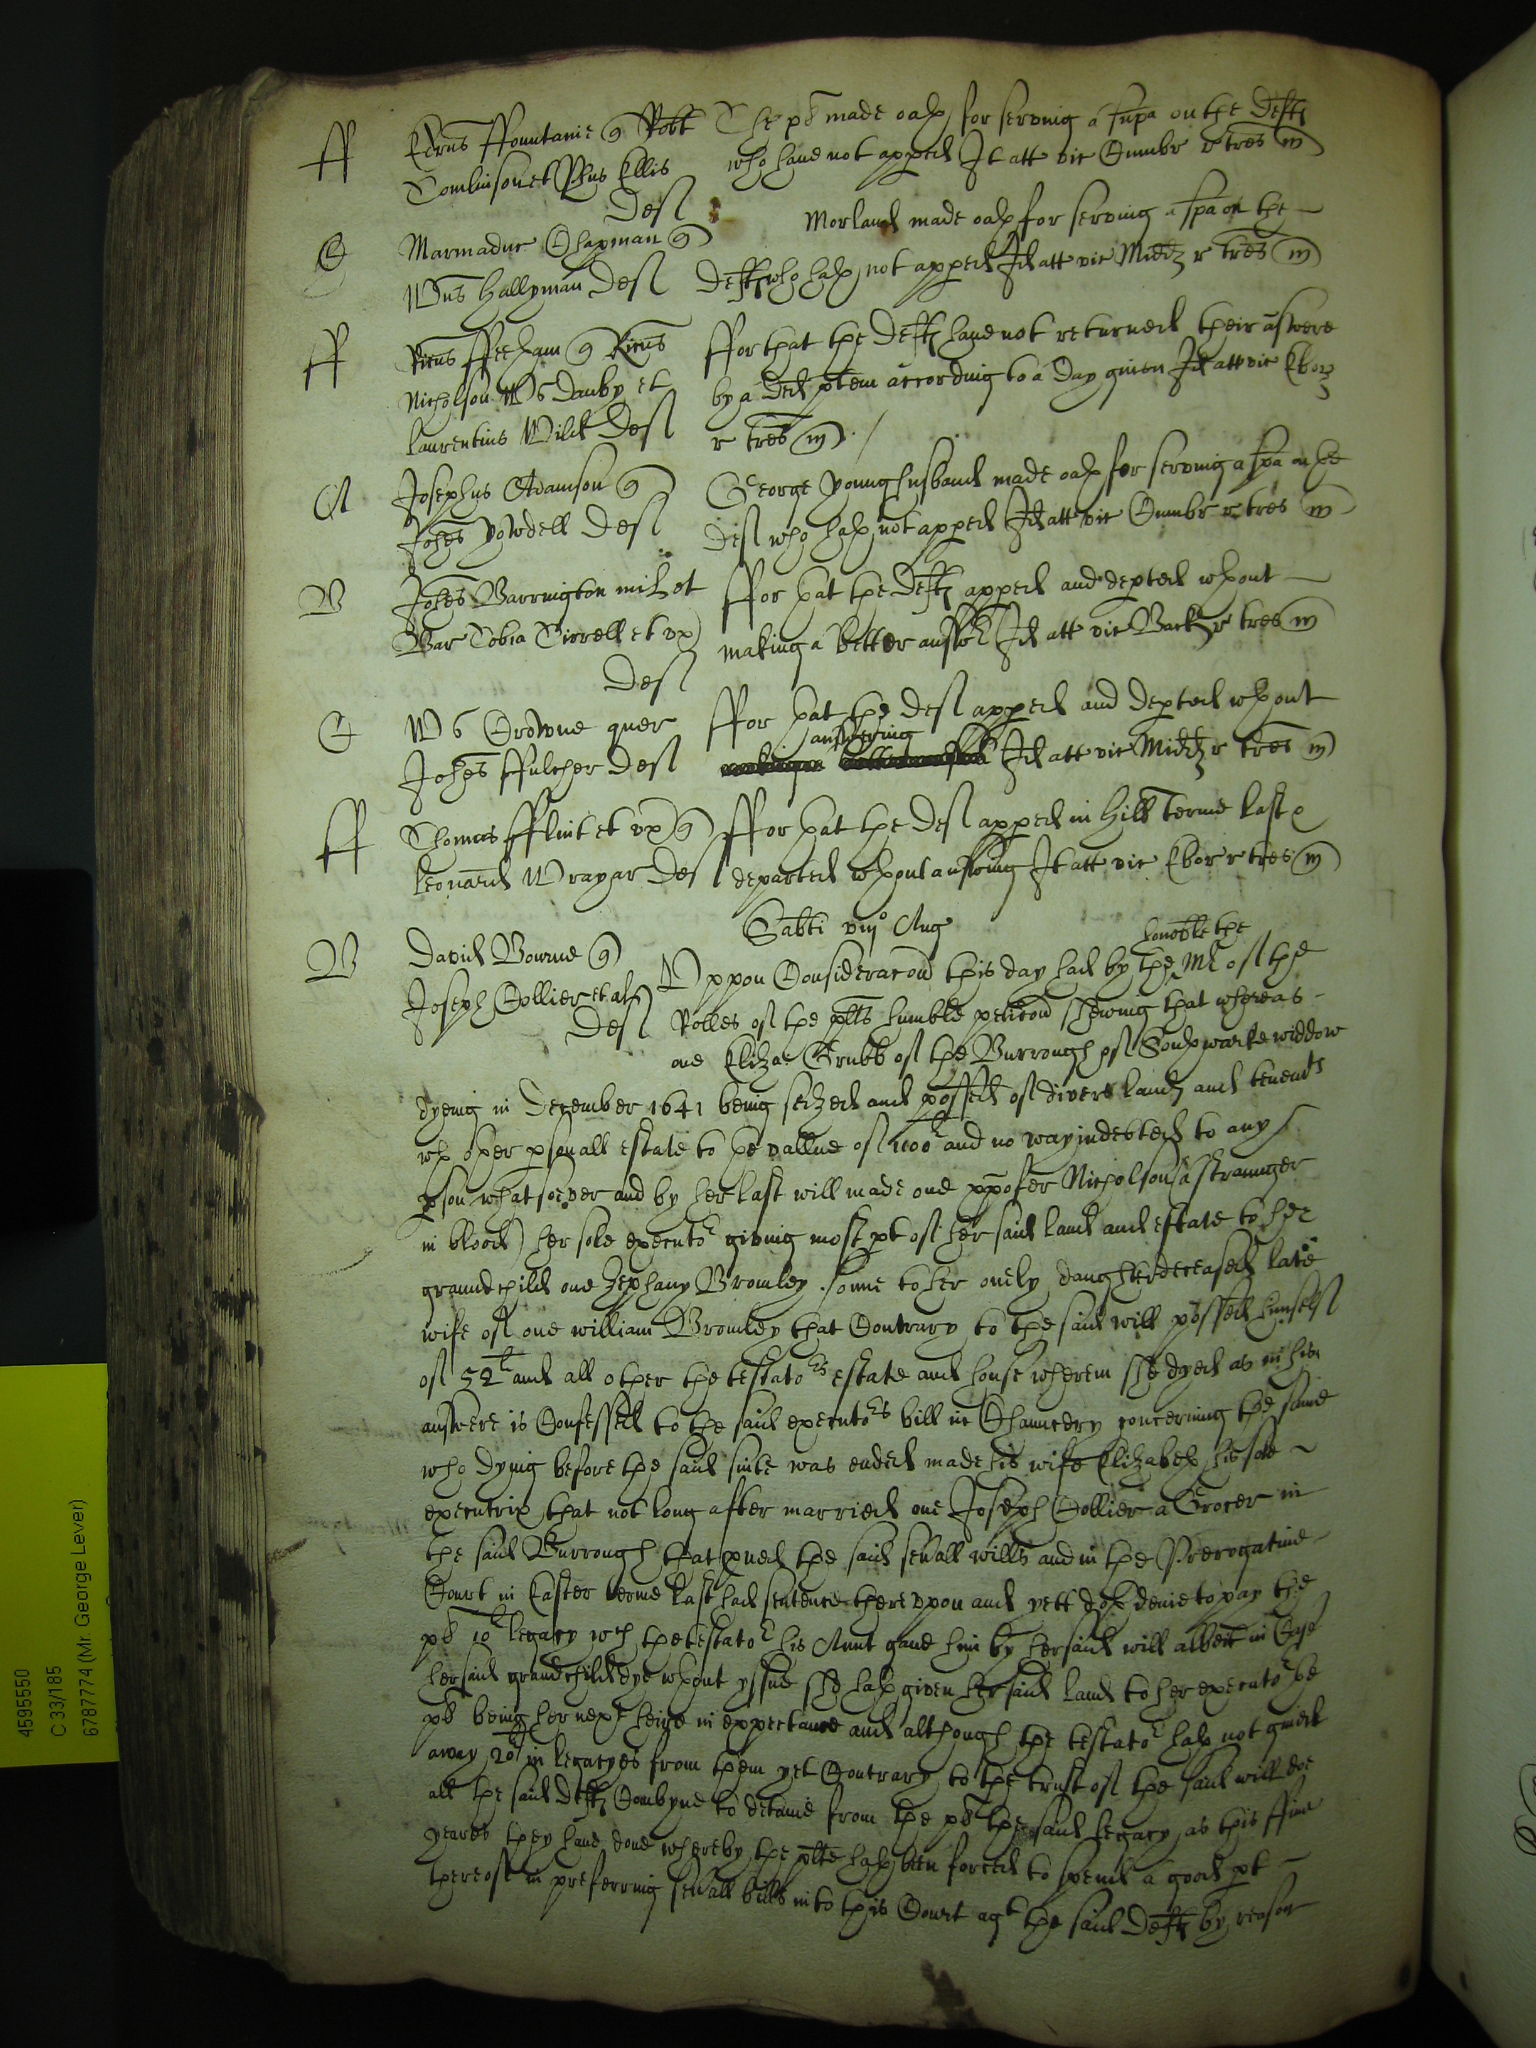 ff
Edrus Ffountaine q Robt
Tomlinson et Petrus Ellis
Deft
The pl made oath for serving a supa on the Defts
who have not apped It att vic Cumbr r tres m
C
Marmaduc Chapman q
Wms Hallyman Deft
Morland made oath for serving a spa on the
Deft who hath not apped Id att vic Midd r tres m
ff
Ricus ffetham q Ricus
Nicholson Ws Danby et
Laurentius Wild Deft
Ffor that the Defts have not returned their answere
by a Ded ptem according to a day given Id att vic Ebor
r tres m
A
Josephus Adamson q
Johes Yowdell Deft
George Younghusband made oath for serving a spa on the
Deft who hath not apped Id att vic Cumbr r tres m
B
Johes Barrington mil et
Bar Tobia Tirrell et ux
Deft
Ffor that the Defts apped and depted wthout
making a better answr Id att vic Buck r tres m
C
Ws Crowne quer
Johes Ffulcher Deft
Ffor that the Deft apped and depted wthout
answering
Id att vic Midd r tres m
ff
Thomas Fflint et ux q
Leonard Wrayar Deft
Ffor that the Deft apped in Hill terme last
departed wthout answing It att vic Ebor r tres m
Sabti viij Aug
B
David Bourne q
Joseph Collier et al
Deft
honoble the
Uppon Consideracon this day had by the Mr of the
Rolles of the plts humble peticon shewing that whereas
one Eliza Grubb of the Burrough of Southwarke widdow
dyeing in December 1641 being seized and possed of divers lands and tenemts
wth other psonall estate to the vallue of 1100l and no way indebted to any
pson whatsoever and by her last will made one Nicholson (a straunger
in blood) her sole executor giving most pt of her said land and estate to her
graundchild one Zephany Bromley sonne to her onely daughter deceased late
wife of one william Bromley that Contrary to the said will possed himself
of 52l and all other the testators estate and house wherein she dyed as in his
answere is Confessed to the said executors bill in Chauncery concerning the same
who dying before the said suite was ended made his wife Elizabeth his sole
executrix that not long after married one Joseph Collier a Grocer in
the said Burrough that pved the said sevall wills and in the Prerogative
Court in Easter terme last had sentence thereupon and yett doth denie to pay the
pl 10l legacy wch the testator his Aunt gave him by her said will albeit in Case
her said grandchild dye wthout yssue she hath given her said land to her executor the
pl being her next heire in expectance and although the testator hath not gived
away 20l in legacyes from them yet Contrary to the trust of the said will doe
all the said Defts Combyne to detaine from the pl the said legacy as this ffive
yeares they have done whereby the plte hath been forced to spend a good pt
thereof in preferring sevall bills into this Court agt the said Defts by reason
4595550
C 33/185
6787774 (Mr. George Lever)